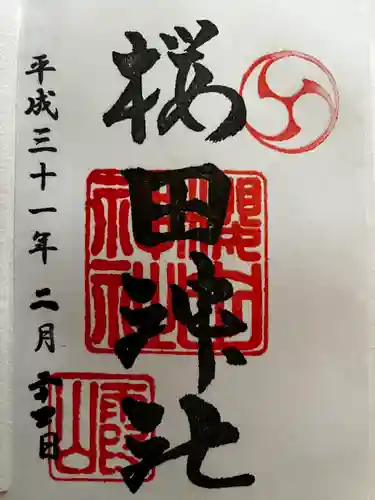 桜田神社
平成三十一年二月二十四日